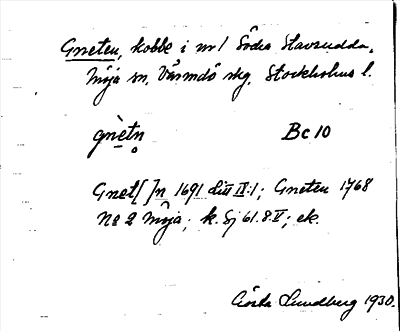 Gneten, kobbe i nr 1 Södra Stavsudda,
Möja sn, Värmdö skg. Stockholms l.
gnètn Bc 10
Gnet[ ]n 1691 Litt IX:1; Gneten 1768
N8 2 Möja; k. Sj 61.8.V; ek.
Gösta Lundberg 1930.